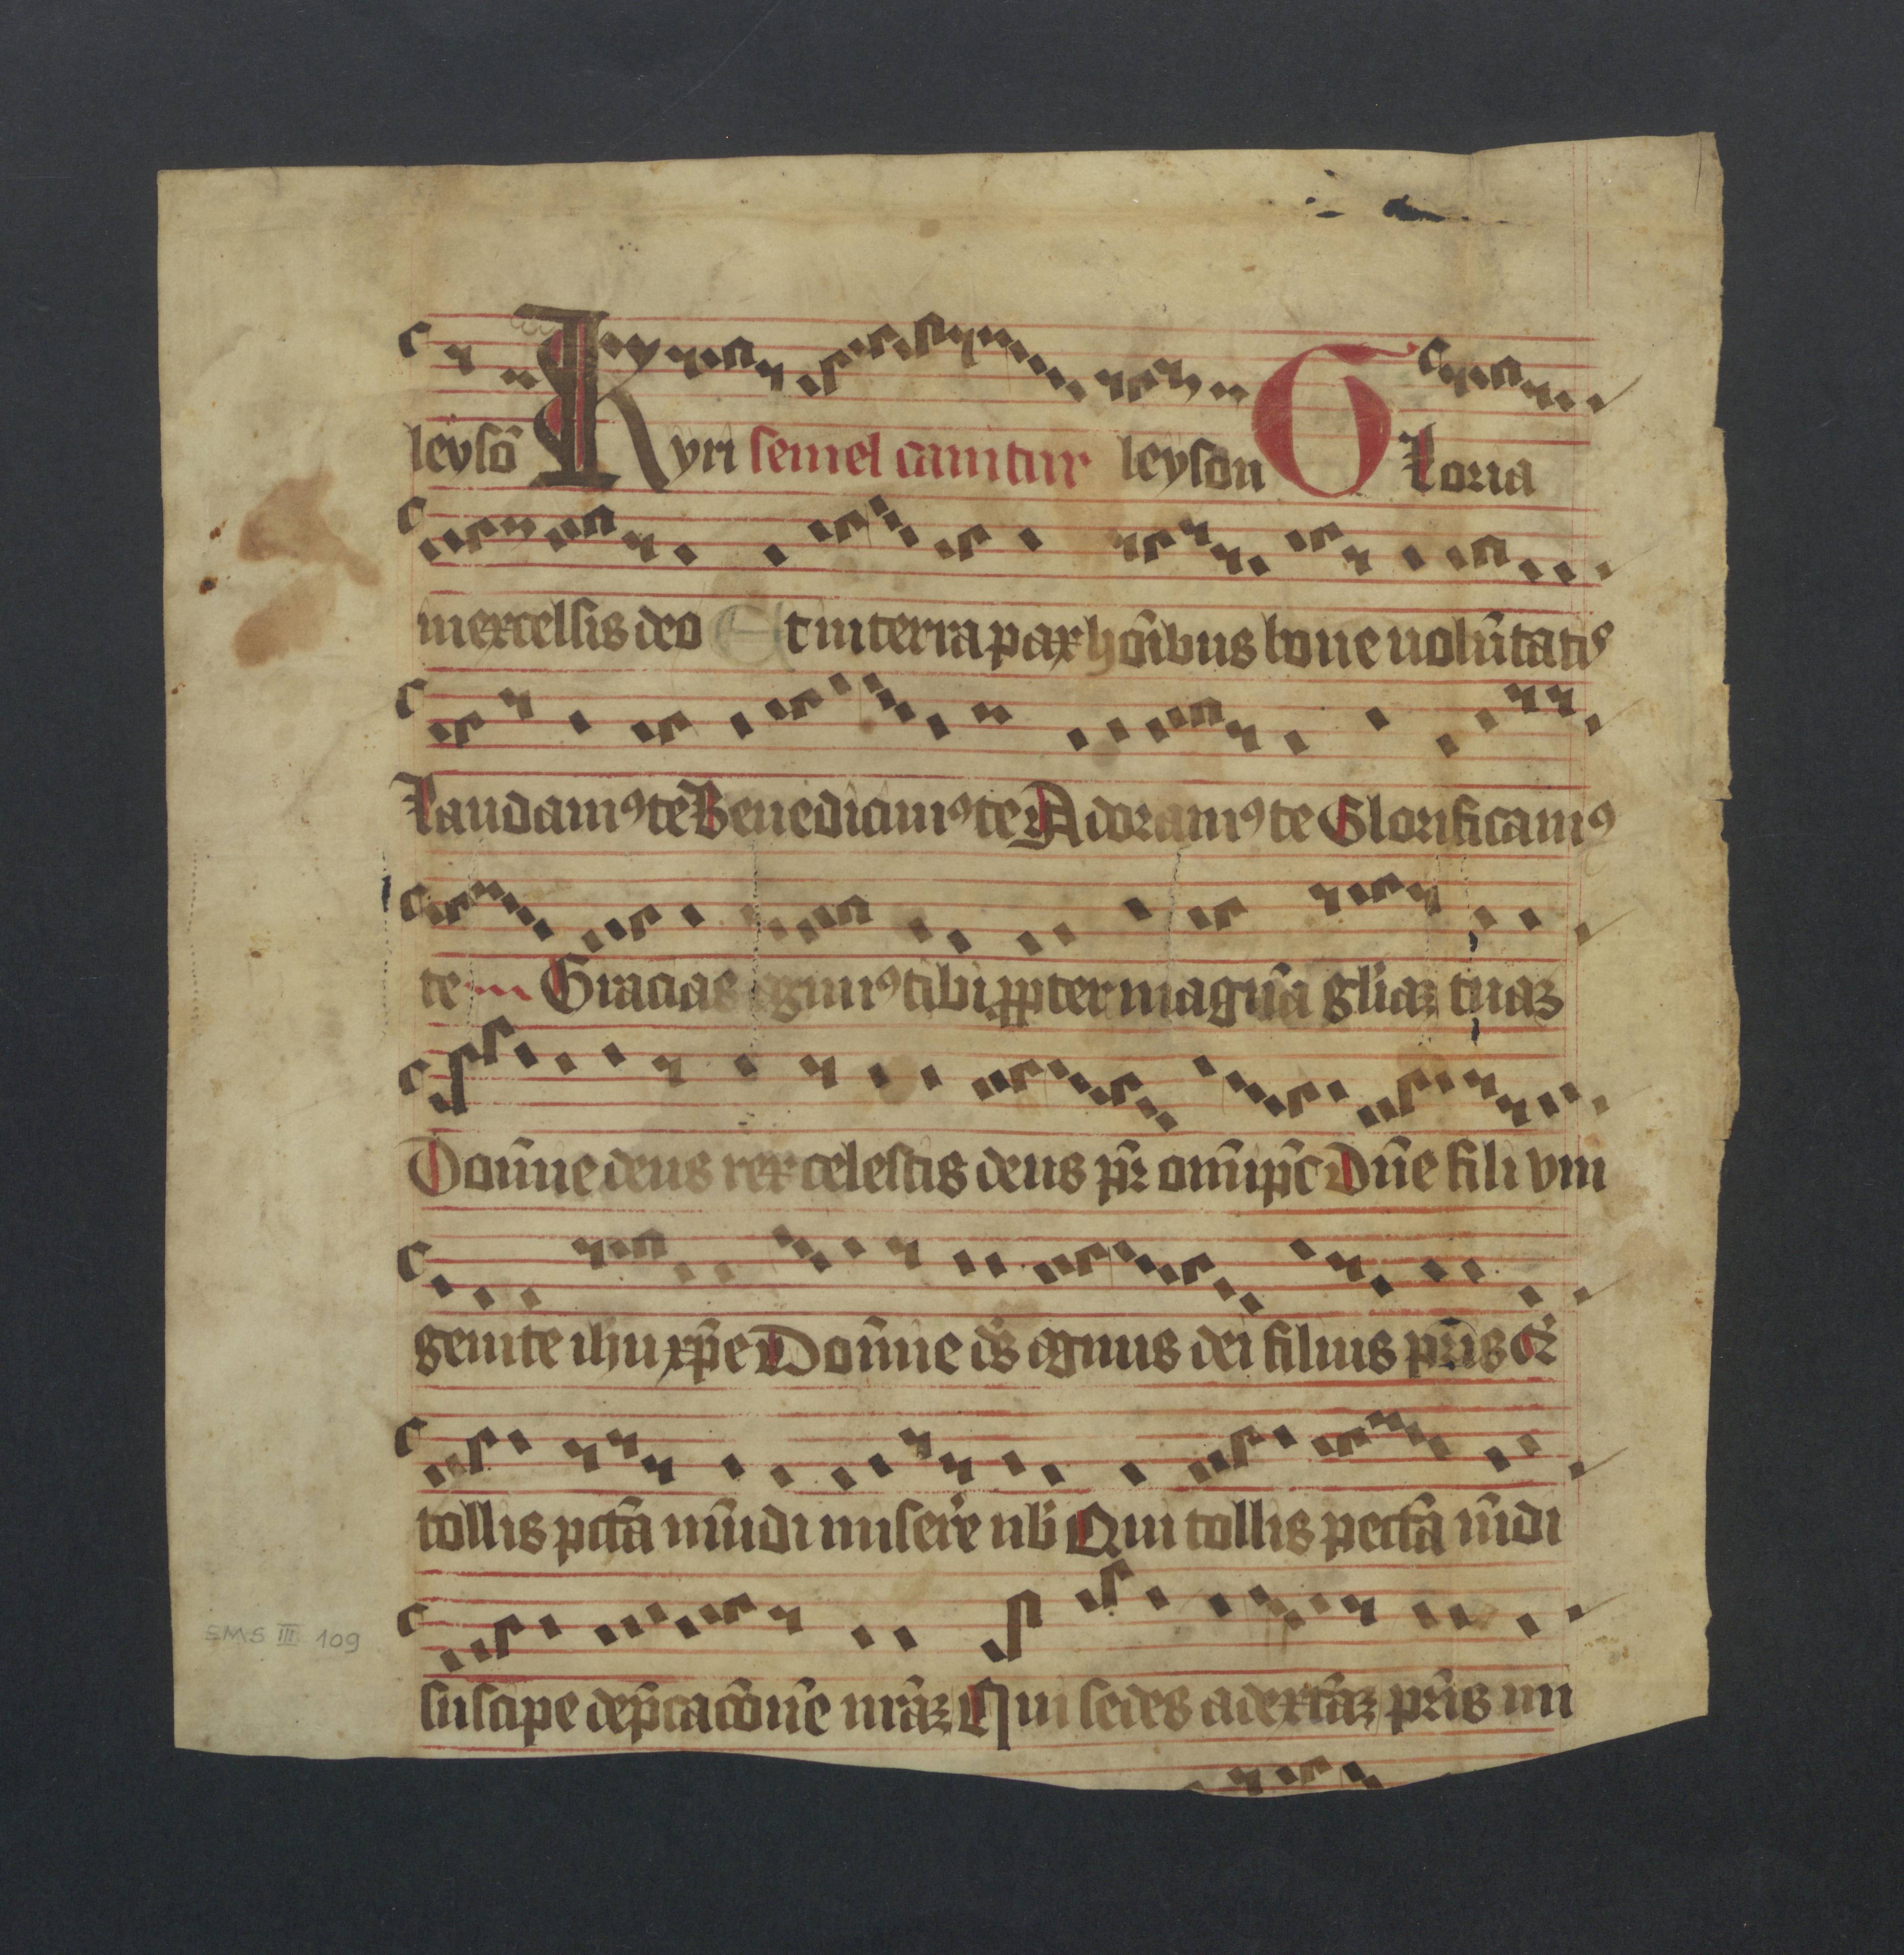 leysō Kyri semel canitur leyson Gloria
inexcelsis deo Et in terra pax hoĩbus bone uolũtatis
Laudamꝰ te Benedicimꝰ te Adoramꝰ te Glorificamꝰ
te Gracias agimꝰ tibi ꝓpter magnã gliaʒ tuaʒ
Domĩne deus rex celestis deus pr̃ omĩp̃c Dñe fili vni
genite ihu xp̃e Domĩne ds̃ agnus dei filius pr̃is Qͥ
tollis pctã mũdi misere nb̃ Qui tollis pectã mũdi
suscipe dep̃cacõnẽ nr̃aʒ Qui sedes adextãʒ pr̃is mi
EMS III 109